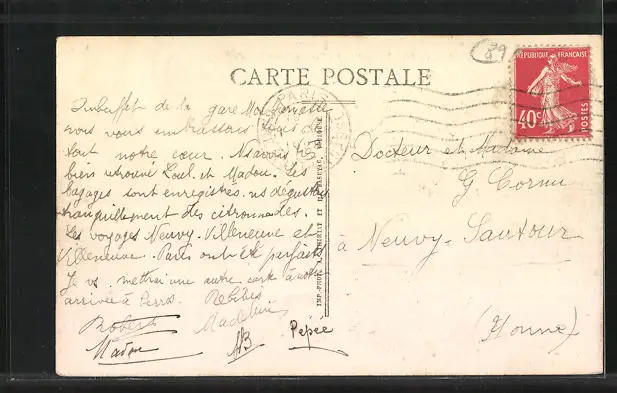 89
RÉPUBLIQUE FRANÇAISE
40c
POSTES
CARTE POSTALE
PARIS
Au buffet de la gare Montparnasse
nous vous embrassons tous de
tout notre cœur. Ns avons
bien retrouvé Loul. et Madou. Les
bagages sont enregistrés. ns dégustons
tranquillement des citronnades.
Les voyages Neuvy-Villeneuve et
Villeneuve-Paris ont été parfaits
Je vs mettrai une autre carte à notre
arrivée à Perros.
Robert
Madeleine
Madou
Pépée
Docteur et Madame
G. Cornu
à Neuvy-Sautour
(Yonne)